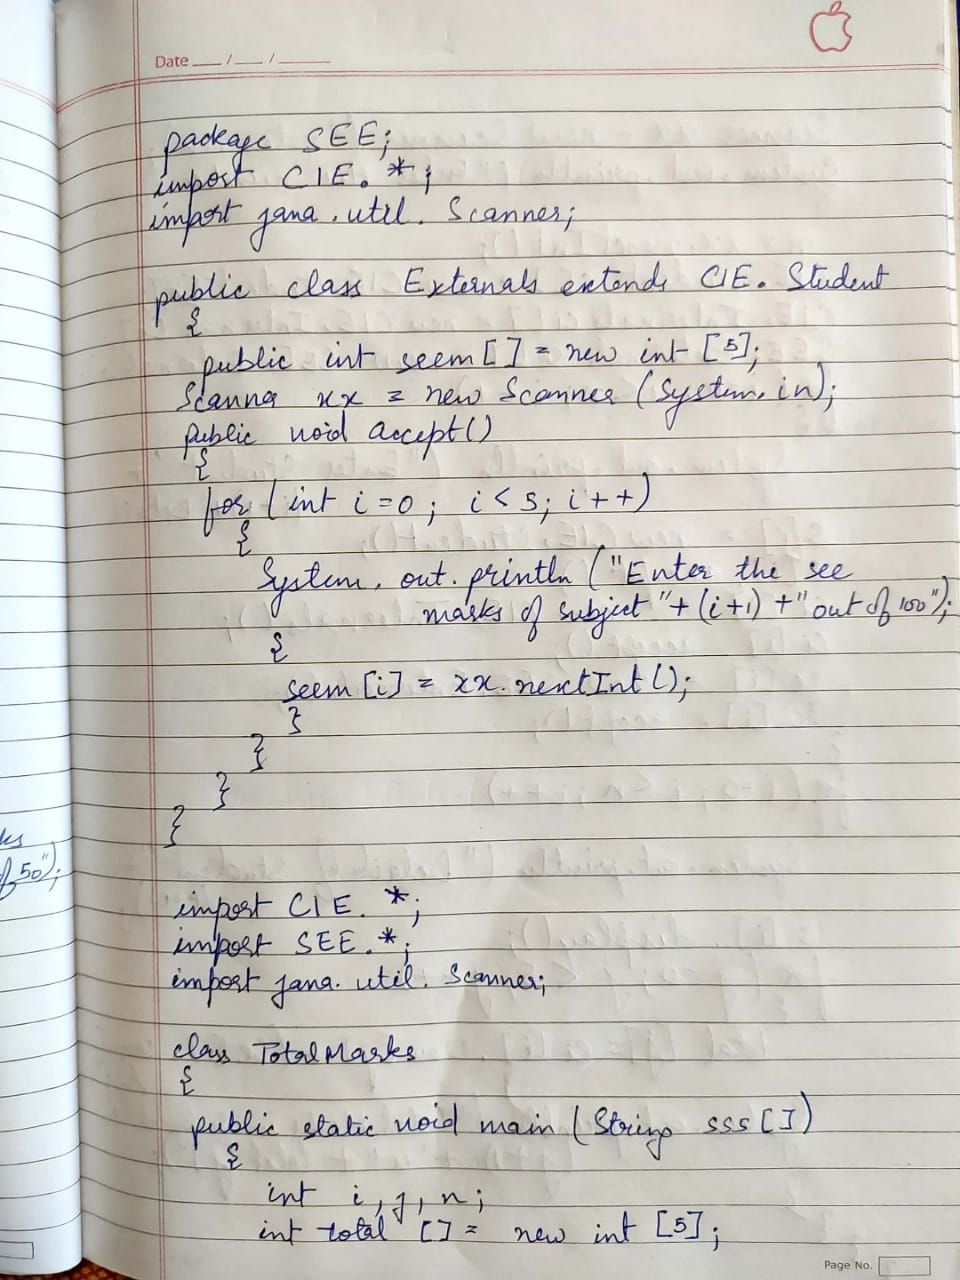 Date __ / __ / ____
package SEE;
import CIE.*;
import java.util.Scanner;
public class Externals extends CIE.Student
{
public int seem[] = new int[5];
Scanner xx = new Scanner(System.in);
public void accept()
{
for(int i=0; i<5; i++)
{
System.out.println("Enter the see
marks of subject "+(i+1)+"out of 100");
{
seem[i] = xx.nextInt();
}
}
}
}
ks
of 50");
import CIE.*;
import SEE.*;
import java.util.Scanner;
class TotalMarks
{
public static void main(String sss[])
{
int i,j,n;
int total[] = new int[5];
Page No.